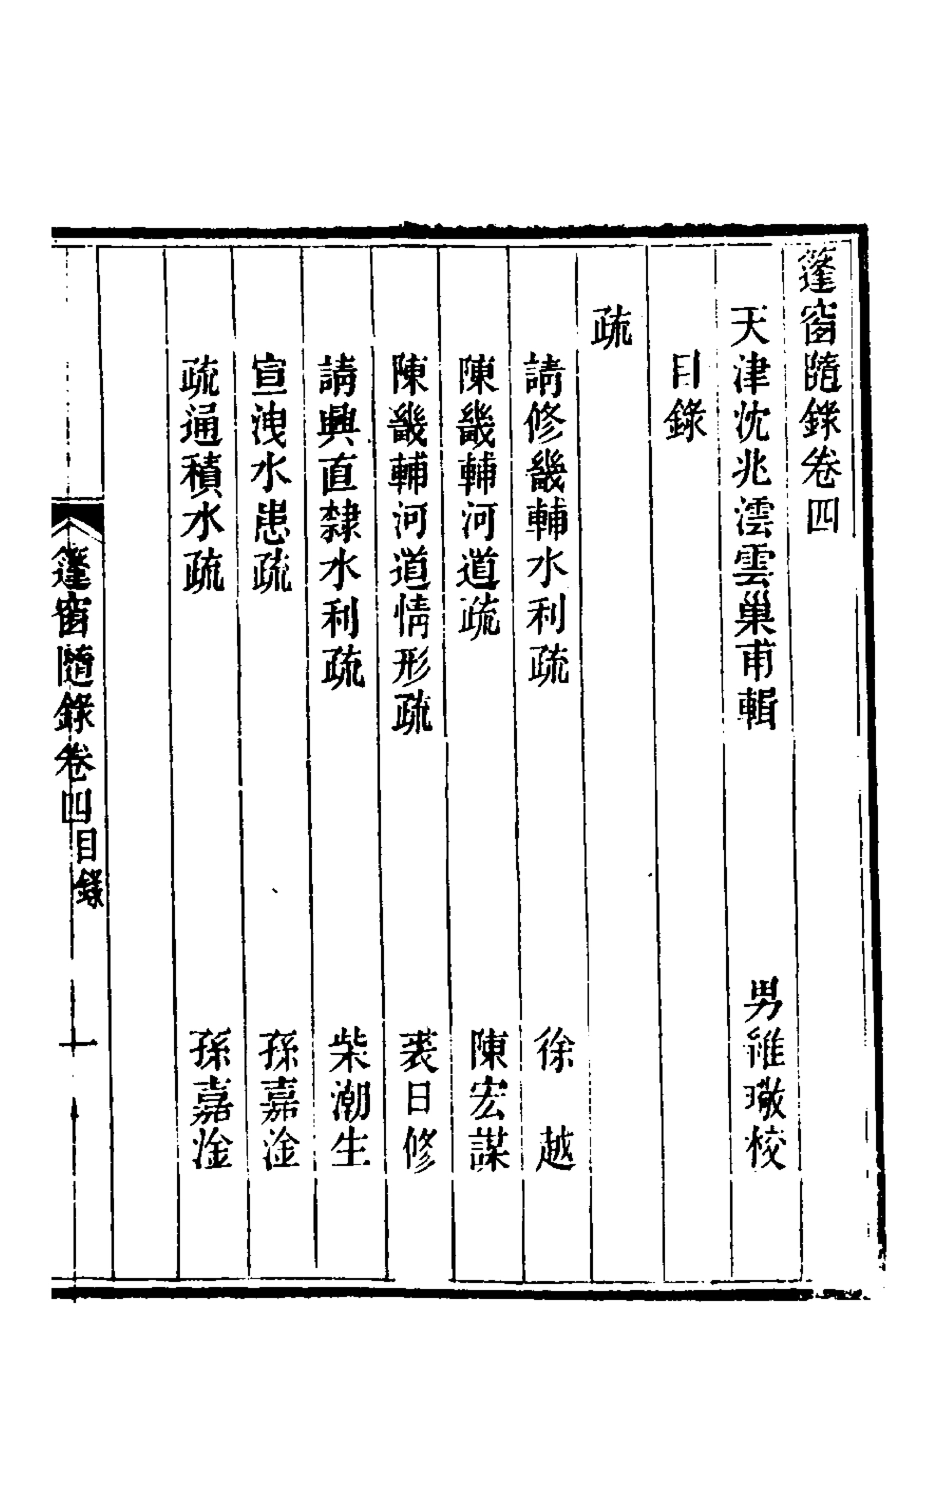 蓬窗隨錄卷四
天津沈兆澐雲巢甫輯 男維璥校
目錄
疏
請修畿輔水利疏 徐越
陳畿輔河道疏 陳宏謀
陳畿輔河道情形疏 裘日修
請興直隸水利疏 柴潮生
宣洩水患疏 孫嘉淦
疏通積水疏 孫嘉淦
蓬窗隨錄卷四 目錄 一